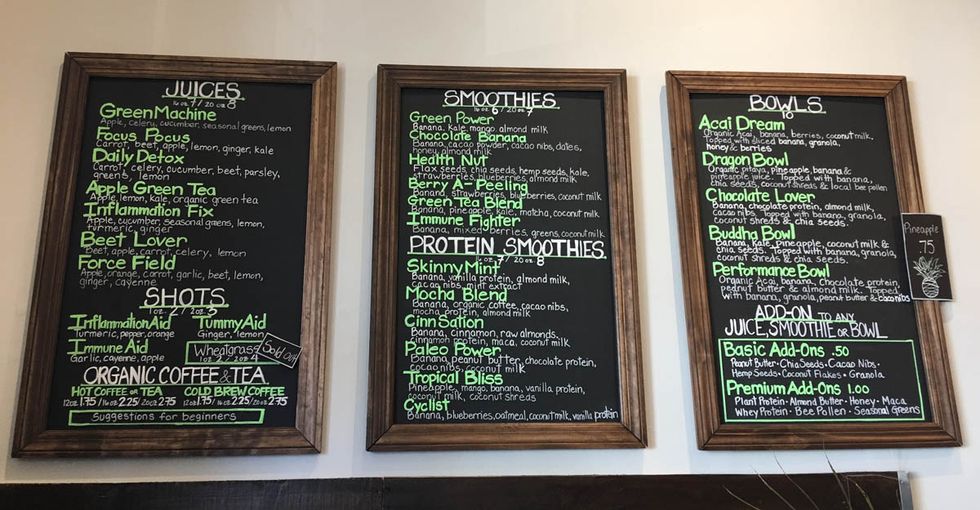 JUICES
16 oz. 7 / 20 oz 8
Green Machine
Apple, celery, cucumber, seasonal greens, lemon
Focus Pocus
Carrot, beet, apple, lemon, ginger, kale
Daily Detox
Carrot, celery, cucumber, beet, parsley,
greens, lemon
Apple Green Tea
Apple, lemon, kale, organic green tea
Inflammation Fix
Apple, cucumber, seasonal greens, lemon,
turmeric, ginger
Beet Lover
Beet, apple, carrot, celery, lemon
Force Field
Apple, orange, carrot, garlic, beet, lemon,
ginger, cayenne
SHOTS
1 oz. 2 / 2 oz 3
Inflammation Aid
Turmeric, pepper, orange
Tummy Aid
Ginger, lemon
Immune Aid
Garlic, cayenne, apple
Wheatgrass
1 oz 2 / 2 oz 4
Sold out
ORGANIC COFFEE & TEA
HOT COFFEE or TEA
12 oz 1.75 / 16 oz 2.25 20 oz 2.75
COLD BREW COFFEE
12 oz 1.75 / 16 oz 2.25 / 20 oz 2.75
Suggestions for beginners
SMOOTHIES
16 oz. 6 / 20 oz. 7
Green Power
Banana, kale, mango, almond milk
Chocolate Banana
Banana, cacao powder, cacao nibs, dates,
honey, almond milk
Health Nut
Flax seeds, chia seeds, hemp seeds, kale,
strawberries, blueberries, almond milk
Berry A-Peeling
Banana, strawberries, blueberries, coconut milk
Green Tea Blend
Banana, pineapple, kale, matcha, coconut milk
Immune Fighter
Banana, mixed berries, greens, coconut milk
PROTEIN SMOOTHIES
16 oz. 7 / 20 oz 8
Skinny Mint
Banana, vanilla protein, almond milk,
cacao nibs, mint extract
Mocha Blend
Banana, organic coffee, cacao nibs,
mocha, protein, almond milk
Cinn Sation
Banana, cinnamon, raw almonds,
cinnamon protein, maca, coconut milk
Paleo Power
Banana, peanut butter, chocolate protein,
cacao nibs, coconut milk
Tropical Bliss
Pineapple, mango, banana, vanilla protein,
coconut milk, coconut shreds
Cyclist
Banana, blueberries, oatmeal, coconut milk, vanilla protein
BOWLS
10
Acai Dream
Organic Acai, banana, berries, coconut milk,
Topped with sliced banana, granola,
honey & berries
Dragon Bowl
Organic pitaya, pineapple, banana &
pineapple juice. Topped with banana,
chia seeds, coconut shreds & local bee pollen
Chocolate Lover
Banana, chocolate protein, almond milk,
cacao nibs. Topped with banana, granola,
coconut shreds & chia seeds.
Buddha Bowl
Banana, Kale, pineapple, coconut milk &
chia seeds. Topped with banana, granola,
coconut shreds & chia seeds.
Performance Bowl
Organic Acai, banana, chocolate protein,
peanut butter & almond milk. Topped
with banana, granola, peanut butter & cacao nibs
ADD-ON TO ANY
JUICE, SMOOTHIE OR BOWL
Basic Add-Ons .50
Peanut Butter • Chia Seeds • Cacao Nibs •
Hemp Seeds • Coconut Flakes • Granola
Premium Add-Ons 1.00
Plant Protein • Almond Butter • Honey • Maca
Whey Protein • Bee Pollen • Seasonal Greens
Pineapple
.75